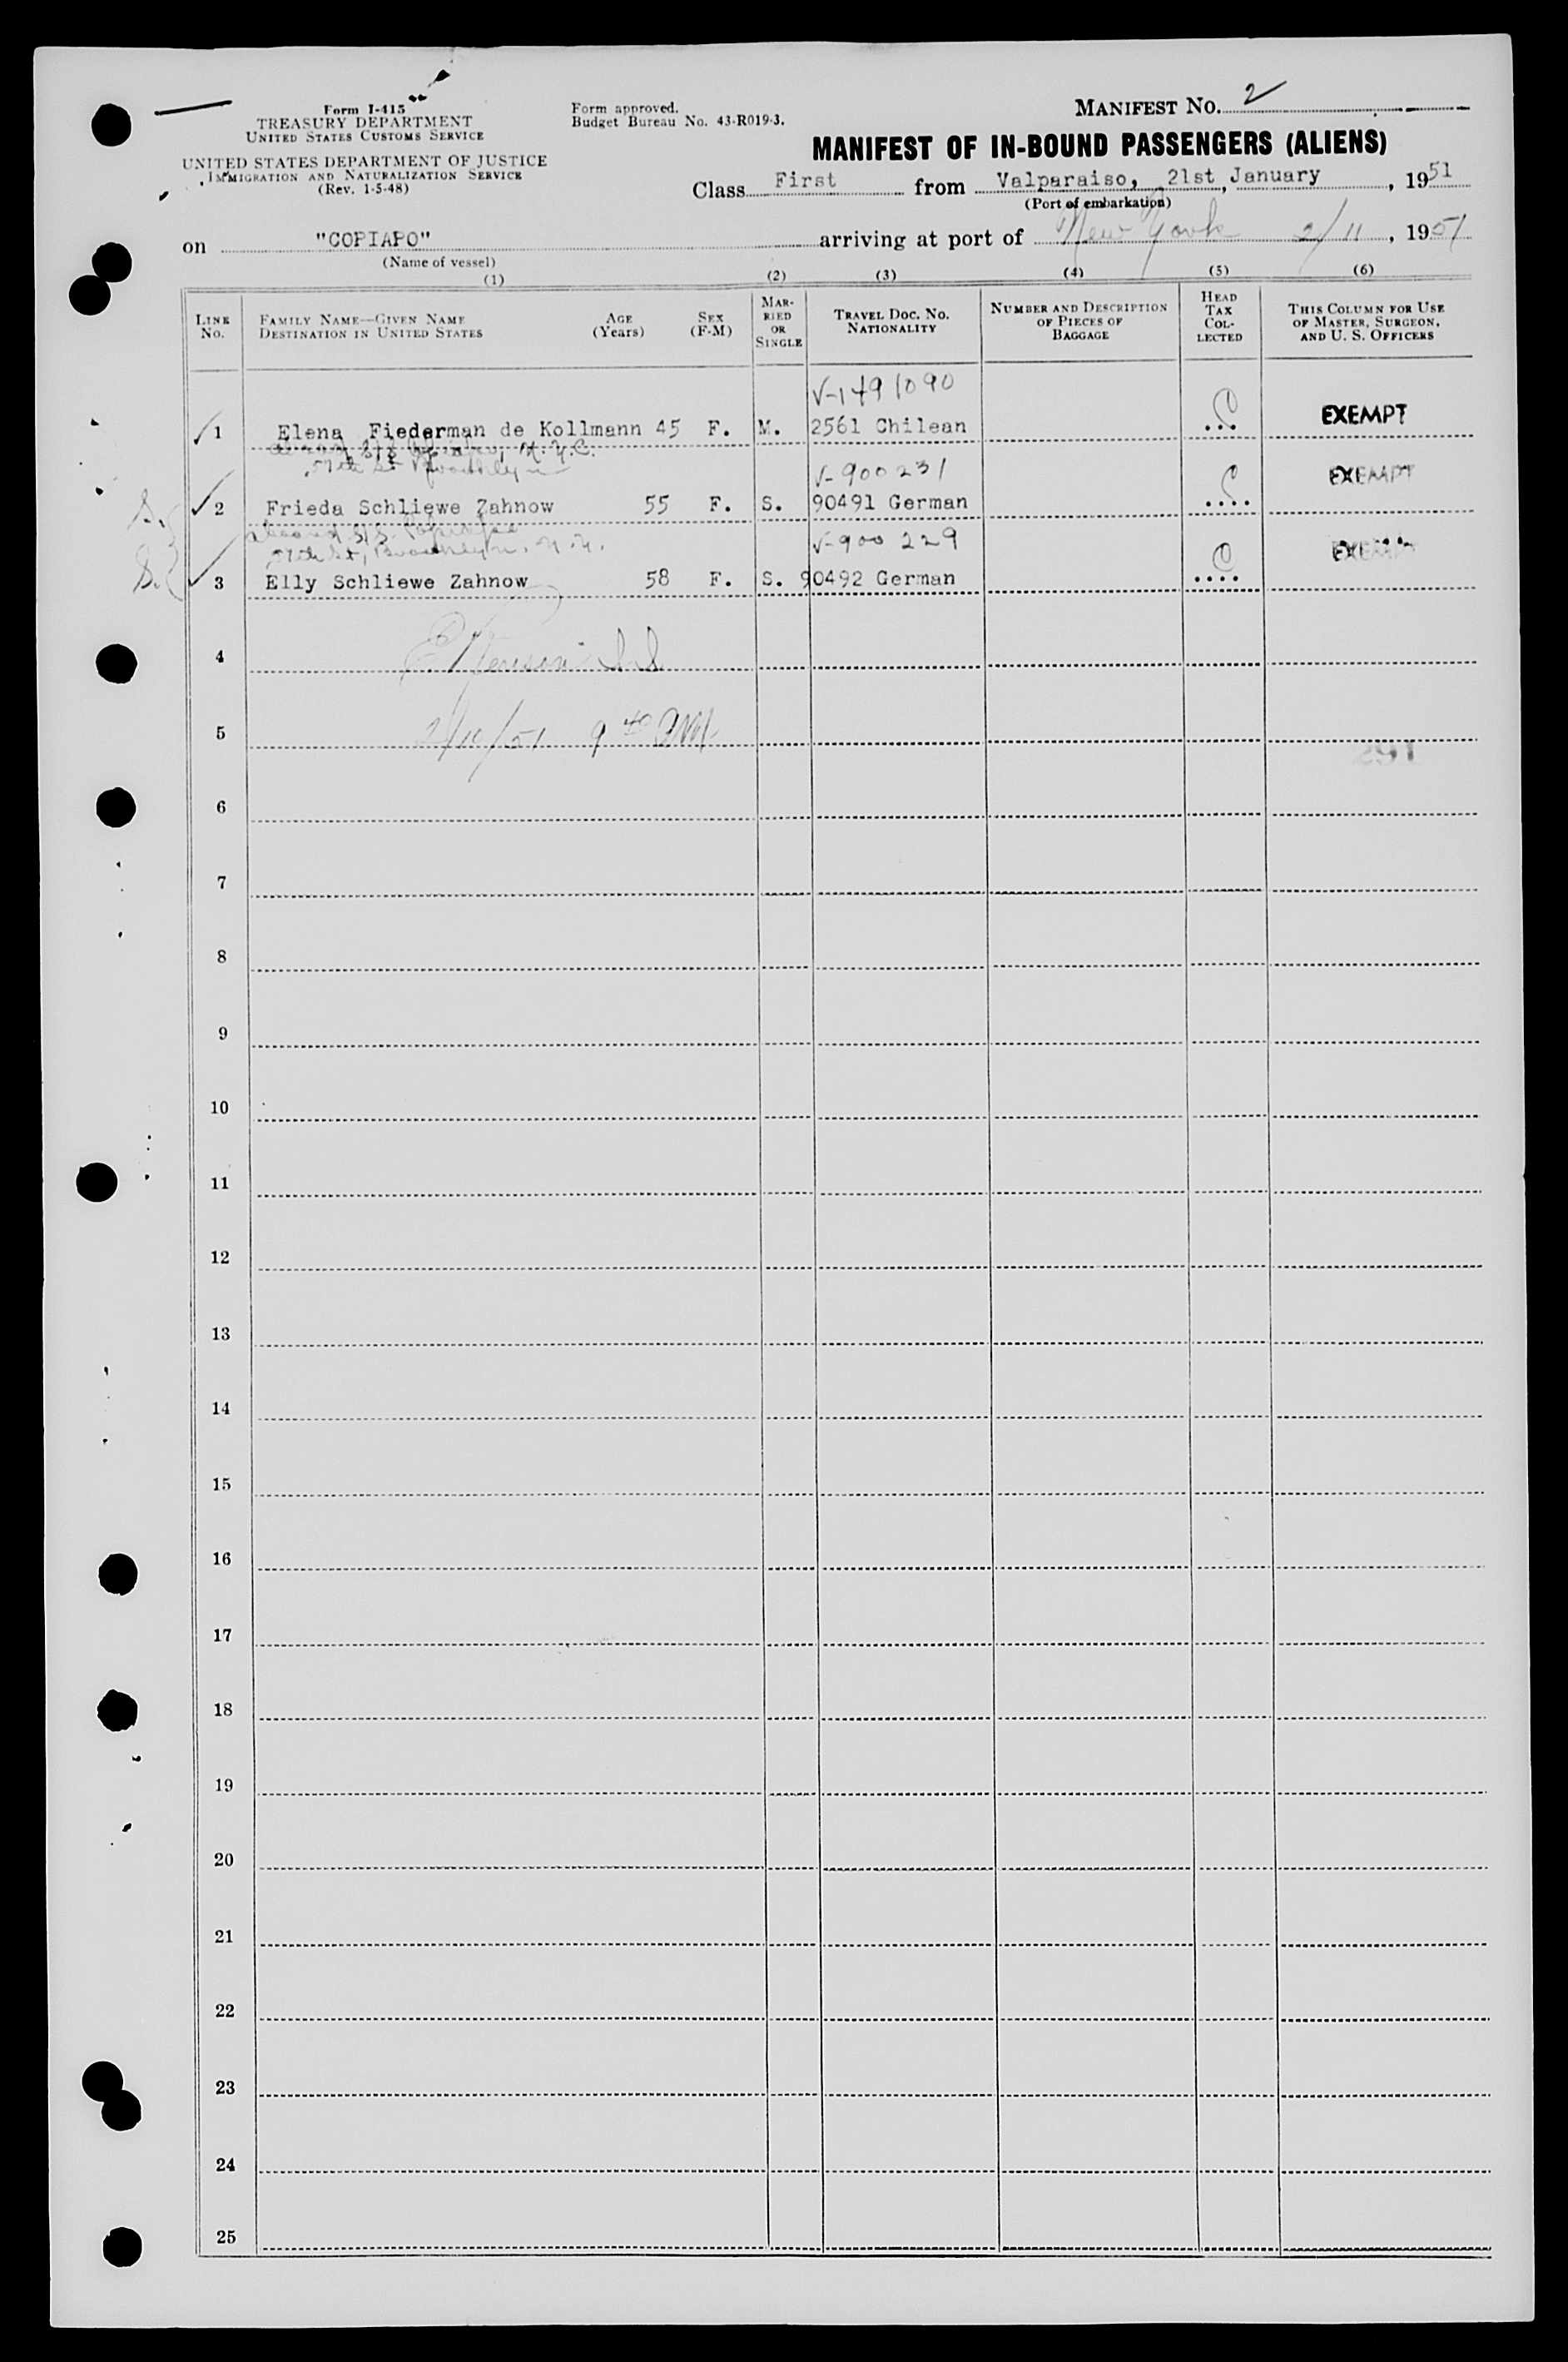 Form I-415
TREASURY DEPARTMENT
UNITED STATES CUSTOMS SERVICE
UNITED STATES DEPARTMENT OF JUSTICE
IMMIGRATION AND NATURALIZATION SERVICE
(Rev. 1-5-48)
Form approved.
Budget Bureau No. 43-R019-3.
MANIFEST NO. 2
MANIFEST OF IN-BOUND PASSENGERS (ALIENS)
Class First from Valparaiso, 21st, January, 1951
(Port of embarkation)
on "COPIAPO" arriving at port of New York 2/11, 1951
(Name of vessel)
(1) (2) (3) (4) (5) (6)
LINE No.
FAMILY NAME—GIVEN NAME
DESTINATION IN UNITED STATES
AGE (Years)
SEX (F-M)
MARRIED OR SINGLE
TRAVEL DOC. NO. NATIONALITY
NUMBER AND DESCRIPTION OF PIECES OF BAGGAGE
HEAD TAX COLLECTED
THIS COLUMN FOR USE OF MASTER, SURGEON, AND U. S. OFFICERS
V-1491090
1 Elena Fiederman de Kollmann 45 F. M. 2561 Chilean EXEMPT
N.Y.C.
57th St Brooklyn
V-900231
S. 2 Frieda Schliewe Zahnow 55 F. S. 90491 German EXEMPT
57th St, Brooklyn, N.Y.
V-900229
S. 3 Elly Schliewe Zahnow 58 F. S. 90492 German EXEMPT
4
5 9 40
291
6
7
8
9
10
11
12
13
14
15
16
17
18
19
20
21
22
23
24
25